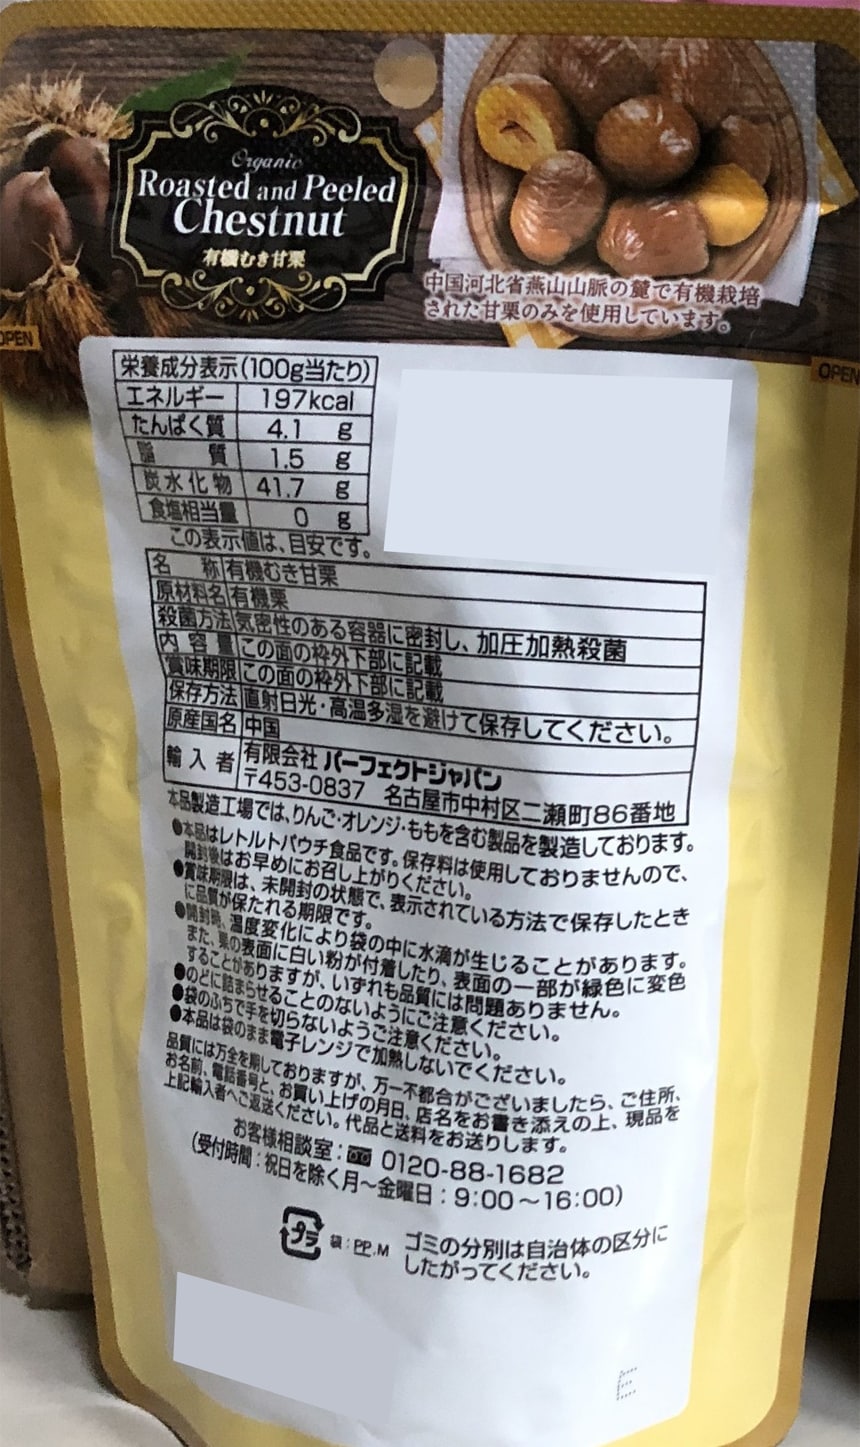 Organic
Roasted and Peeled
Chestnut
有機むき甘栗
中国河北省燕山山脈の麓で有機栽培
された甘栗のみを使用しています。
OPEN
OPEN
栄養成分表示(100g当たり)
エネルギー 197kcal
たんぱく質 4.1 g
脂質 1.5 g
炭水化物 41.7 g
食塩相当量 0 g
この表示値は、目安です。
名称 有機むき甘栗
原材料名 有機栗
殺菌方法 気密性のある容器に密封し、加圧加熱殺菌
内容量 この面の枠外下部に記載
賞味期限 この面の枠外下部に記載
保存方法 直射日光・高温多湿を避けて保存してください。
原産国名 中国
輸入者 有限会社 パーフェクトジャパン
〒453-0837 名古屋市中村区二瀬町86番地
本品製造工場では、りんご・オレンジ・ももを含む製品を製造しております。
●本品はレトルトパウチ食品です。保存料は使用しておりませんので、
開封後はお早めにお召し上がりください。
●賞味期限は、未開封の状態で、表示されている方法で保存したとき
に品質が保たれる期限です。
●開封時、温度変化により袋の中に水滴が生じることがあります。
また、栗の表面に白い粉が付着したり、表面の一部が緑色に変色
することがありますが、いずれも品質には問題ありません。
●のどに詰まらせることのないようにご注意ください。
●袋のふちで手を切らないようご注意ください。
●本品は袋のまま電子レンジで加熱しないでください。
品質には万全を期しておりますが、万一不都合がございましたら、ご住所、
お名前、電話番号と、お買い上げの月日、店名をお書き添えの上、現品を
上記輸入者へご返送ください。代品と送料をお送りします。
お客様相談室: 0120-88-1682
(受付時間:祝日を除く月～金曜日:9:00～16:00)
プラ 袋:PP,M ゴミの分別は自治体の区分に
したがってください。
E